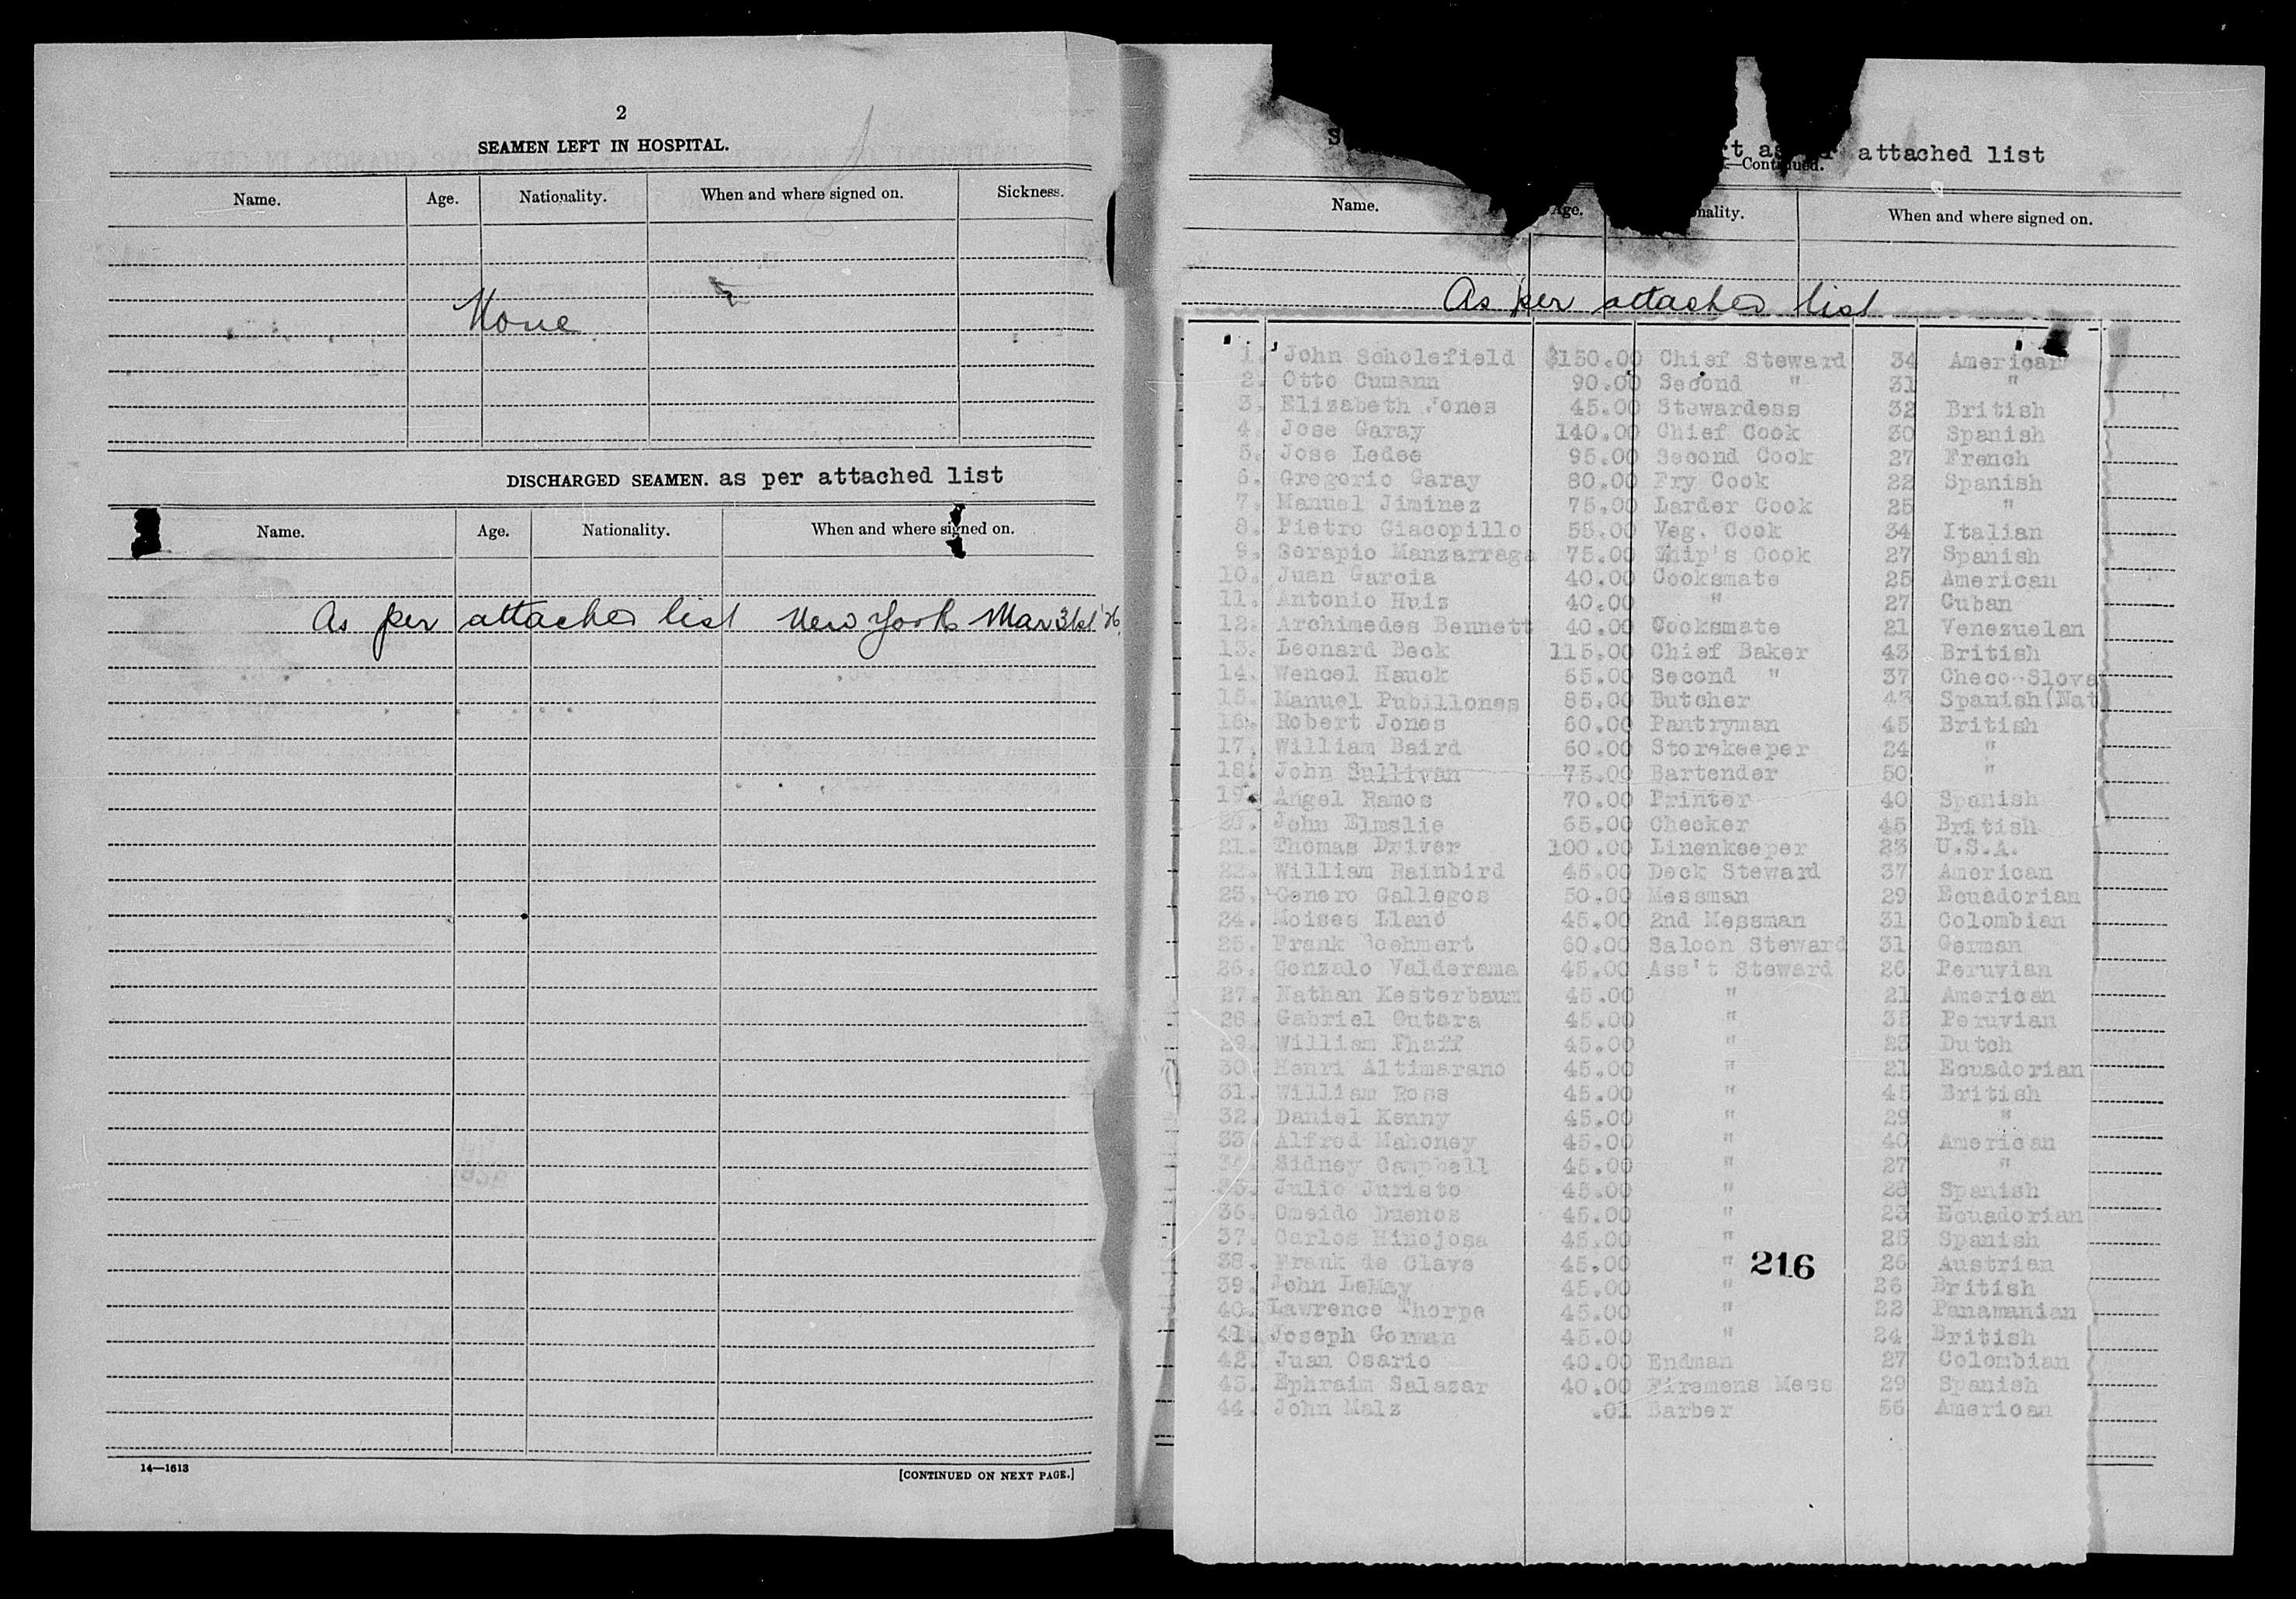 2
SEAMEN LEFT IN HOSPITAL.
Name. Age. Nationality. When and where signed on. Sickness.
None
DISCHARGED SEAMEN. as per attached list
Name. Age. Nationality. When and where signed on.
As per attached list New York Mar 31st '26
14—1613
[CONTINUED ON NEXT PAGE.]
attached list
—Continued.
Name. Age. nality. When and where signed on.
As per attached list
1. John Scholefield $150.00 Chief Steward 34 American
2. Otto Cumann 90.00 Second " 31 "
3. Elizabeth Jones 45.00 Stewardess 32 British
4. Jose Garay 140.00 Chief Cook 30 Spanish
5. Jose Ledee 95.00 Second Cook 27 French
6. Gregorio Garay 80.00 Fry Cook 22 Spanish
7. Manuel Jiminez 75.00 Larder Cook 25 "
8. Pietro Giacopillo 55.00 Veg. Cook 34 Italian
9. Serapio Manzarraga 75.00 Ship's Cook 27 Spanish
10. Juan Garcia 40.00 Cooksmate 25 American
11. Antonio Huis 40.00 " 27 Cuban
12. Archimedes Bennett 40.00 Cooksmate 21 Venezuelan
13. Leonard Beck 115.00 Chief Baker 43 British
14. Wencel Hauck 65.00 Second " 37 Checo-Slova
15. Manuel Pubillones 85.00 Butcher 43 Spanish(Nat)
16. Robert Jones 60.00 Pantryman 45 British
17. William Baird 60.00 Storekeeper 24 "
18. John Sullivan 75.00 Bartender 50 "
19. Angel Ramos 70.00 Printer 40 Spanish
20. John Elmslie 65.00 Checker 45 British
21. Thomas Driver 100.00 Linenkeeper 23 U.S.A.
22. William Rainbird 45.00 Deck Steward 37 American
23. Genero Gallegos 50.00 Messman 29 Ecuadorian
24. Moises Llano 45.00 2nd Messman 31 Colombian
25. Frank Boehmert 60.00 Saloon Steward 31 German
26. Gonzalo Valderama 45.00 Ass't Steward 26 Peruvian
27. Nathan Kesterbaum 45.00 " 21 American
28. Gabriel Gutara 45.00 " 35 Peruvian
29. William Fhaff 45.00 " 23 Dutch
30. Henri Altimarano 45.00 " 21 Ecuadorian
31. William Ross 45.00 " 45 British
32. Daniel Kenny 45.00 " 29 "
33 Alfred Mahoney 45.00 " 40 American
34. Sidney Campbell 45.00 " 27 "
35. Julio Juristo 45.00 " 28 Spanish
36. Omeido Duenos 45.00 " 23 Ecuadorian
37. Carlos Hinojosa 45.00 " 25 Spanish
38. Frank de Clave 45.00 " 26 Austrian
216
39. John LeMay 45.00 " 26 British
40. Lawrence Thorpe 45.00 " 22 Panamanian
41. Joseph Gorman 45.00 " 24 British
42. Juan Osario 40.00 Endman 27 Colombian
43. Ephraim Salazar 40.00 Firemens Mess 29 Spanish
44. John Malz .01 Barber 56 American